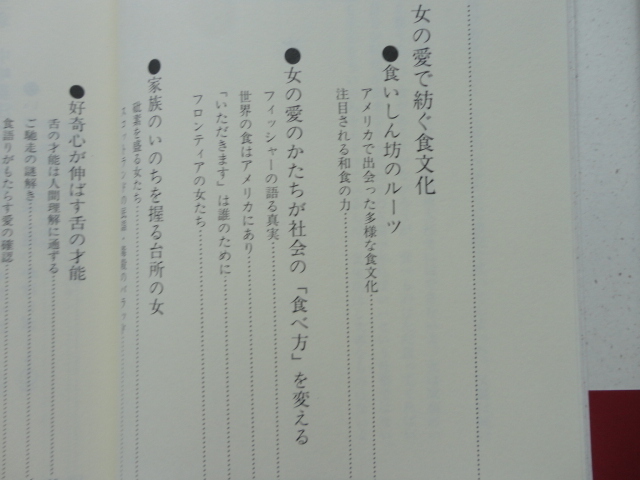 女の愛で紡ぐ食文化
●食いしん坊のルーツ
アメリカで出会った多様な食文化
注目される和食の力
●女の愛のかたちが社会の「食べ方」を変える
フィッシャーの語る真実
世界の食はアメリカにあり
「いただきます」は誰のために
フロンティアの女たち
●家族のいのちを握る台所の女
砒素を盛る女たち
●好奇心が伸ばす舌の才能
舌の才能は人間理解に通ずる
ご馳走の謎解き
食語りがもたらす愛の確認